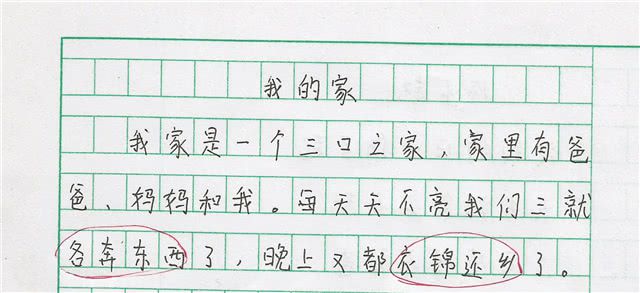 我的家
我家是一个三口之家，家里有爸
爸、妈妈和我。每天天不亮我们三就
各奔东西了，晚上又都衣锦还乡了。